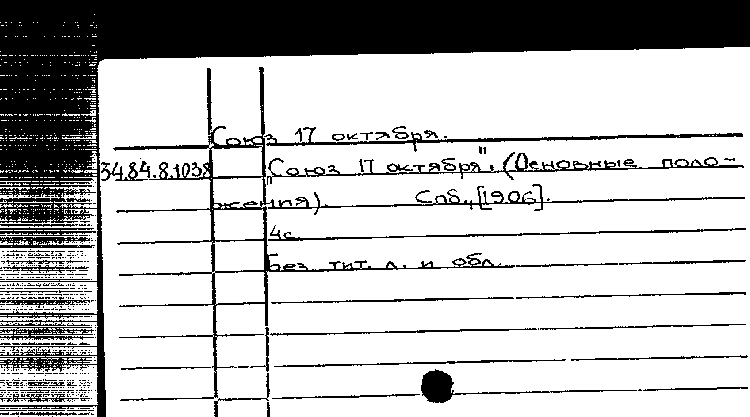 Союз 17 октября.
34.84.8.1038 "Союз 17 октября". (Основные поло-
жения). Спб., [1906].
4с.
Без тит. л. и обл.